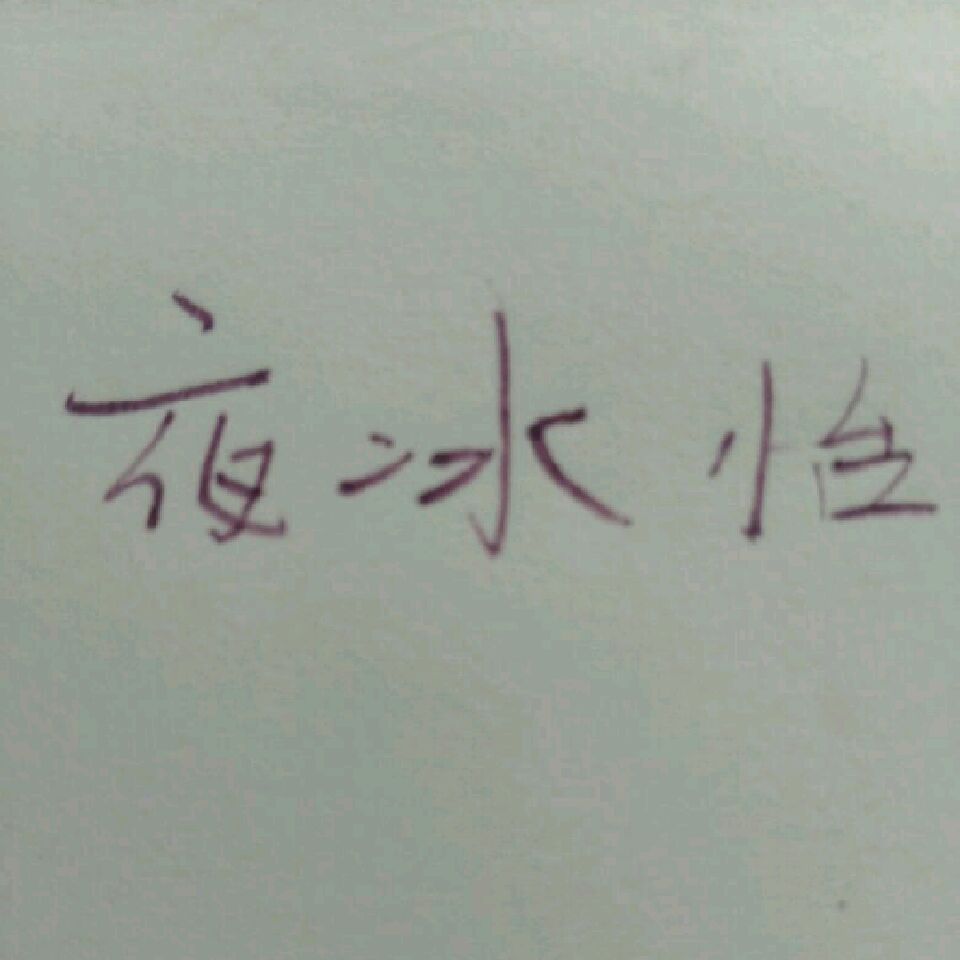 夜冰怡